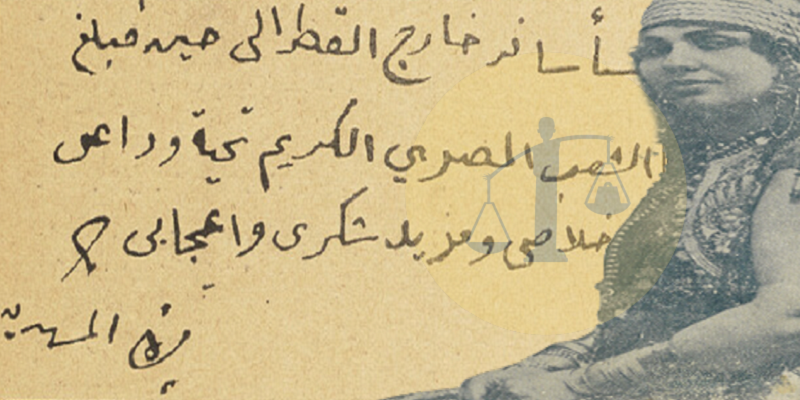 سأسافر خارج القطر الى حين فبلغ
الشعب المصري الكريم تحية وداعى
خلاصى ومزيد شكرى واعجابى
منيرة المهدية